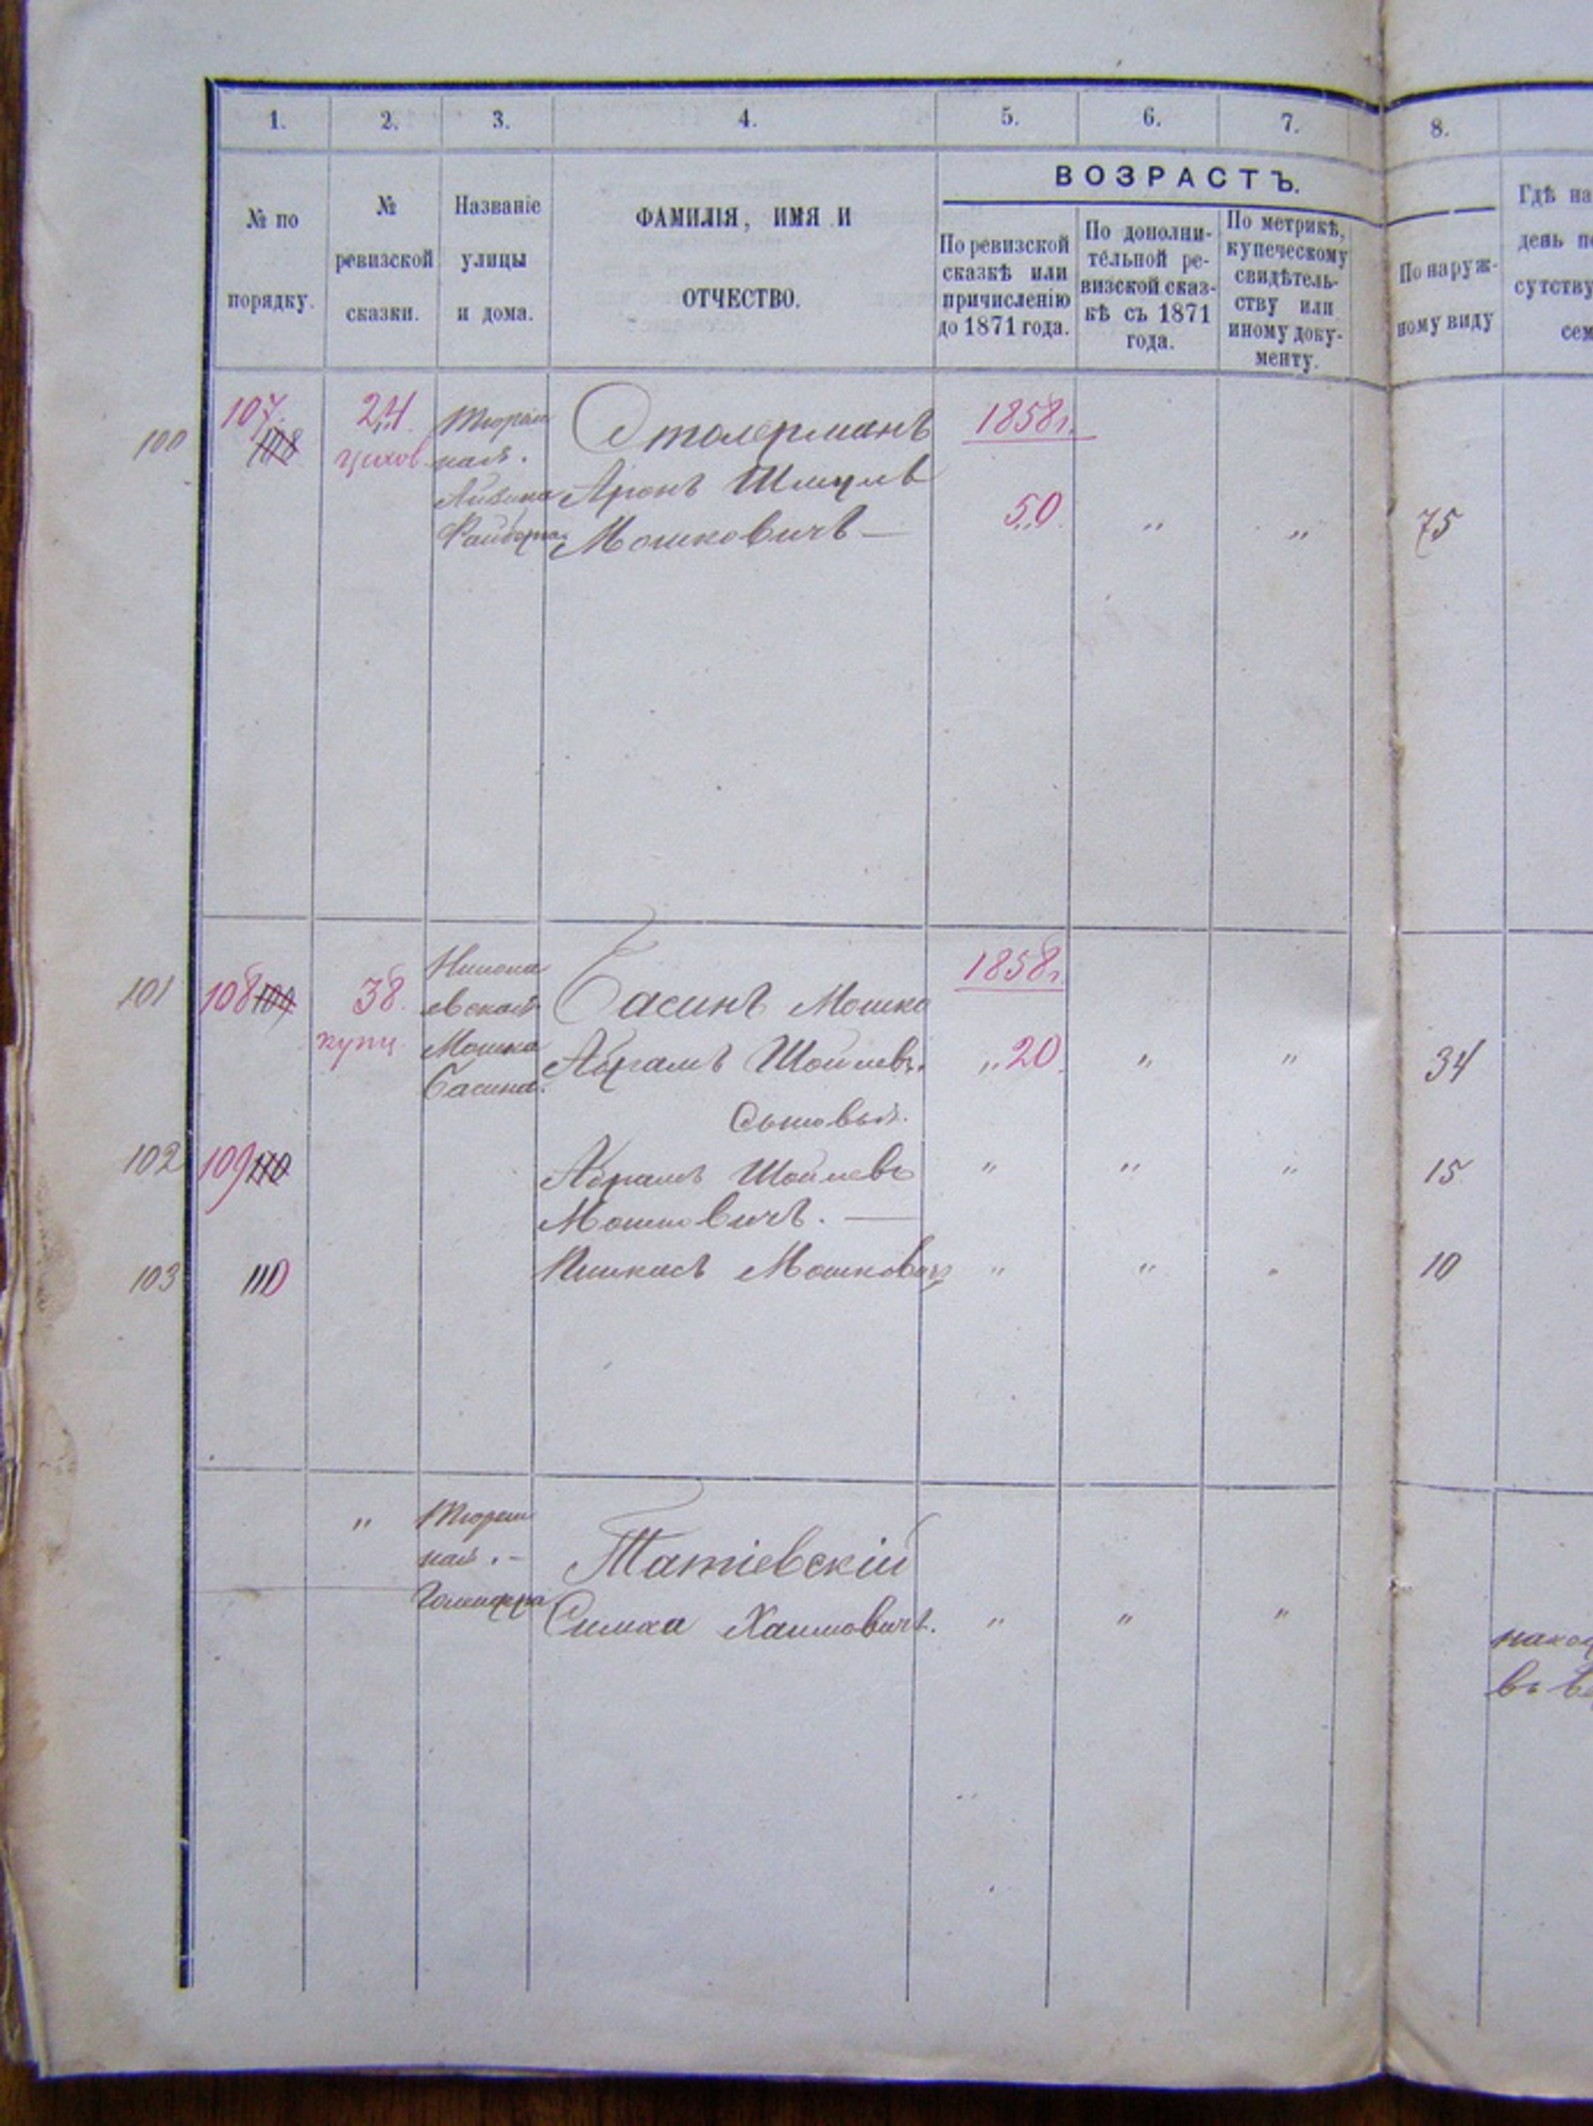 1. 2. 3. 4. 5. 6. 7. 8.
ВОЗРАСТЪ.
№ по
порядку.
№
ревизской
сказки.
Названіе
улицы
и дома.
ФАМИЛІЯ, ИМЯ И
ОТЧЕСТВО.
По ревизской
сказкѣ или
причисленію
до 1871 года.
По дополни-
тельной ре-
визской сказ-
кѣ съ 1871
года.
По метрикѣ,
купеческому
свидѣтель-
ству или
иному доку-
менту.
По наруж-
ному виду
Гдѣ на
день
сутству
сем
100 107 108 24
цехов
Тюрем
ная.
Столерманъ
Аронъ Шмулъ
Мошковичъ —
1858г.
50 „ „ 75
101 108 109 38
купц.
Никола
евская
Мошка
Басина.
Басинъ Мошко
Абрамъ Шоилевъ.
1858г.
„ 20 „ „ 34
Сыновья.
102 109 110 Абрамъ Шоилевъ „ „ „ 15
Мошковичъ. —
103 110 Пинкасъ Мошковичъ „ „ „ 10
„ Тюрем
ная. –
Татіевскій
Симха Хаимовичъ. „ „ „
въ